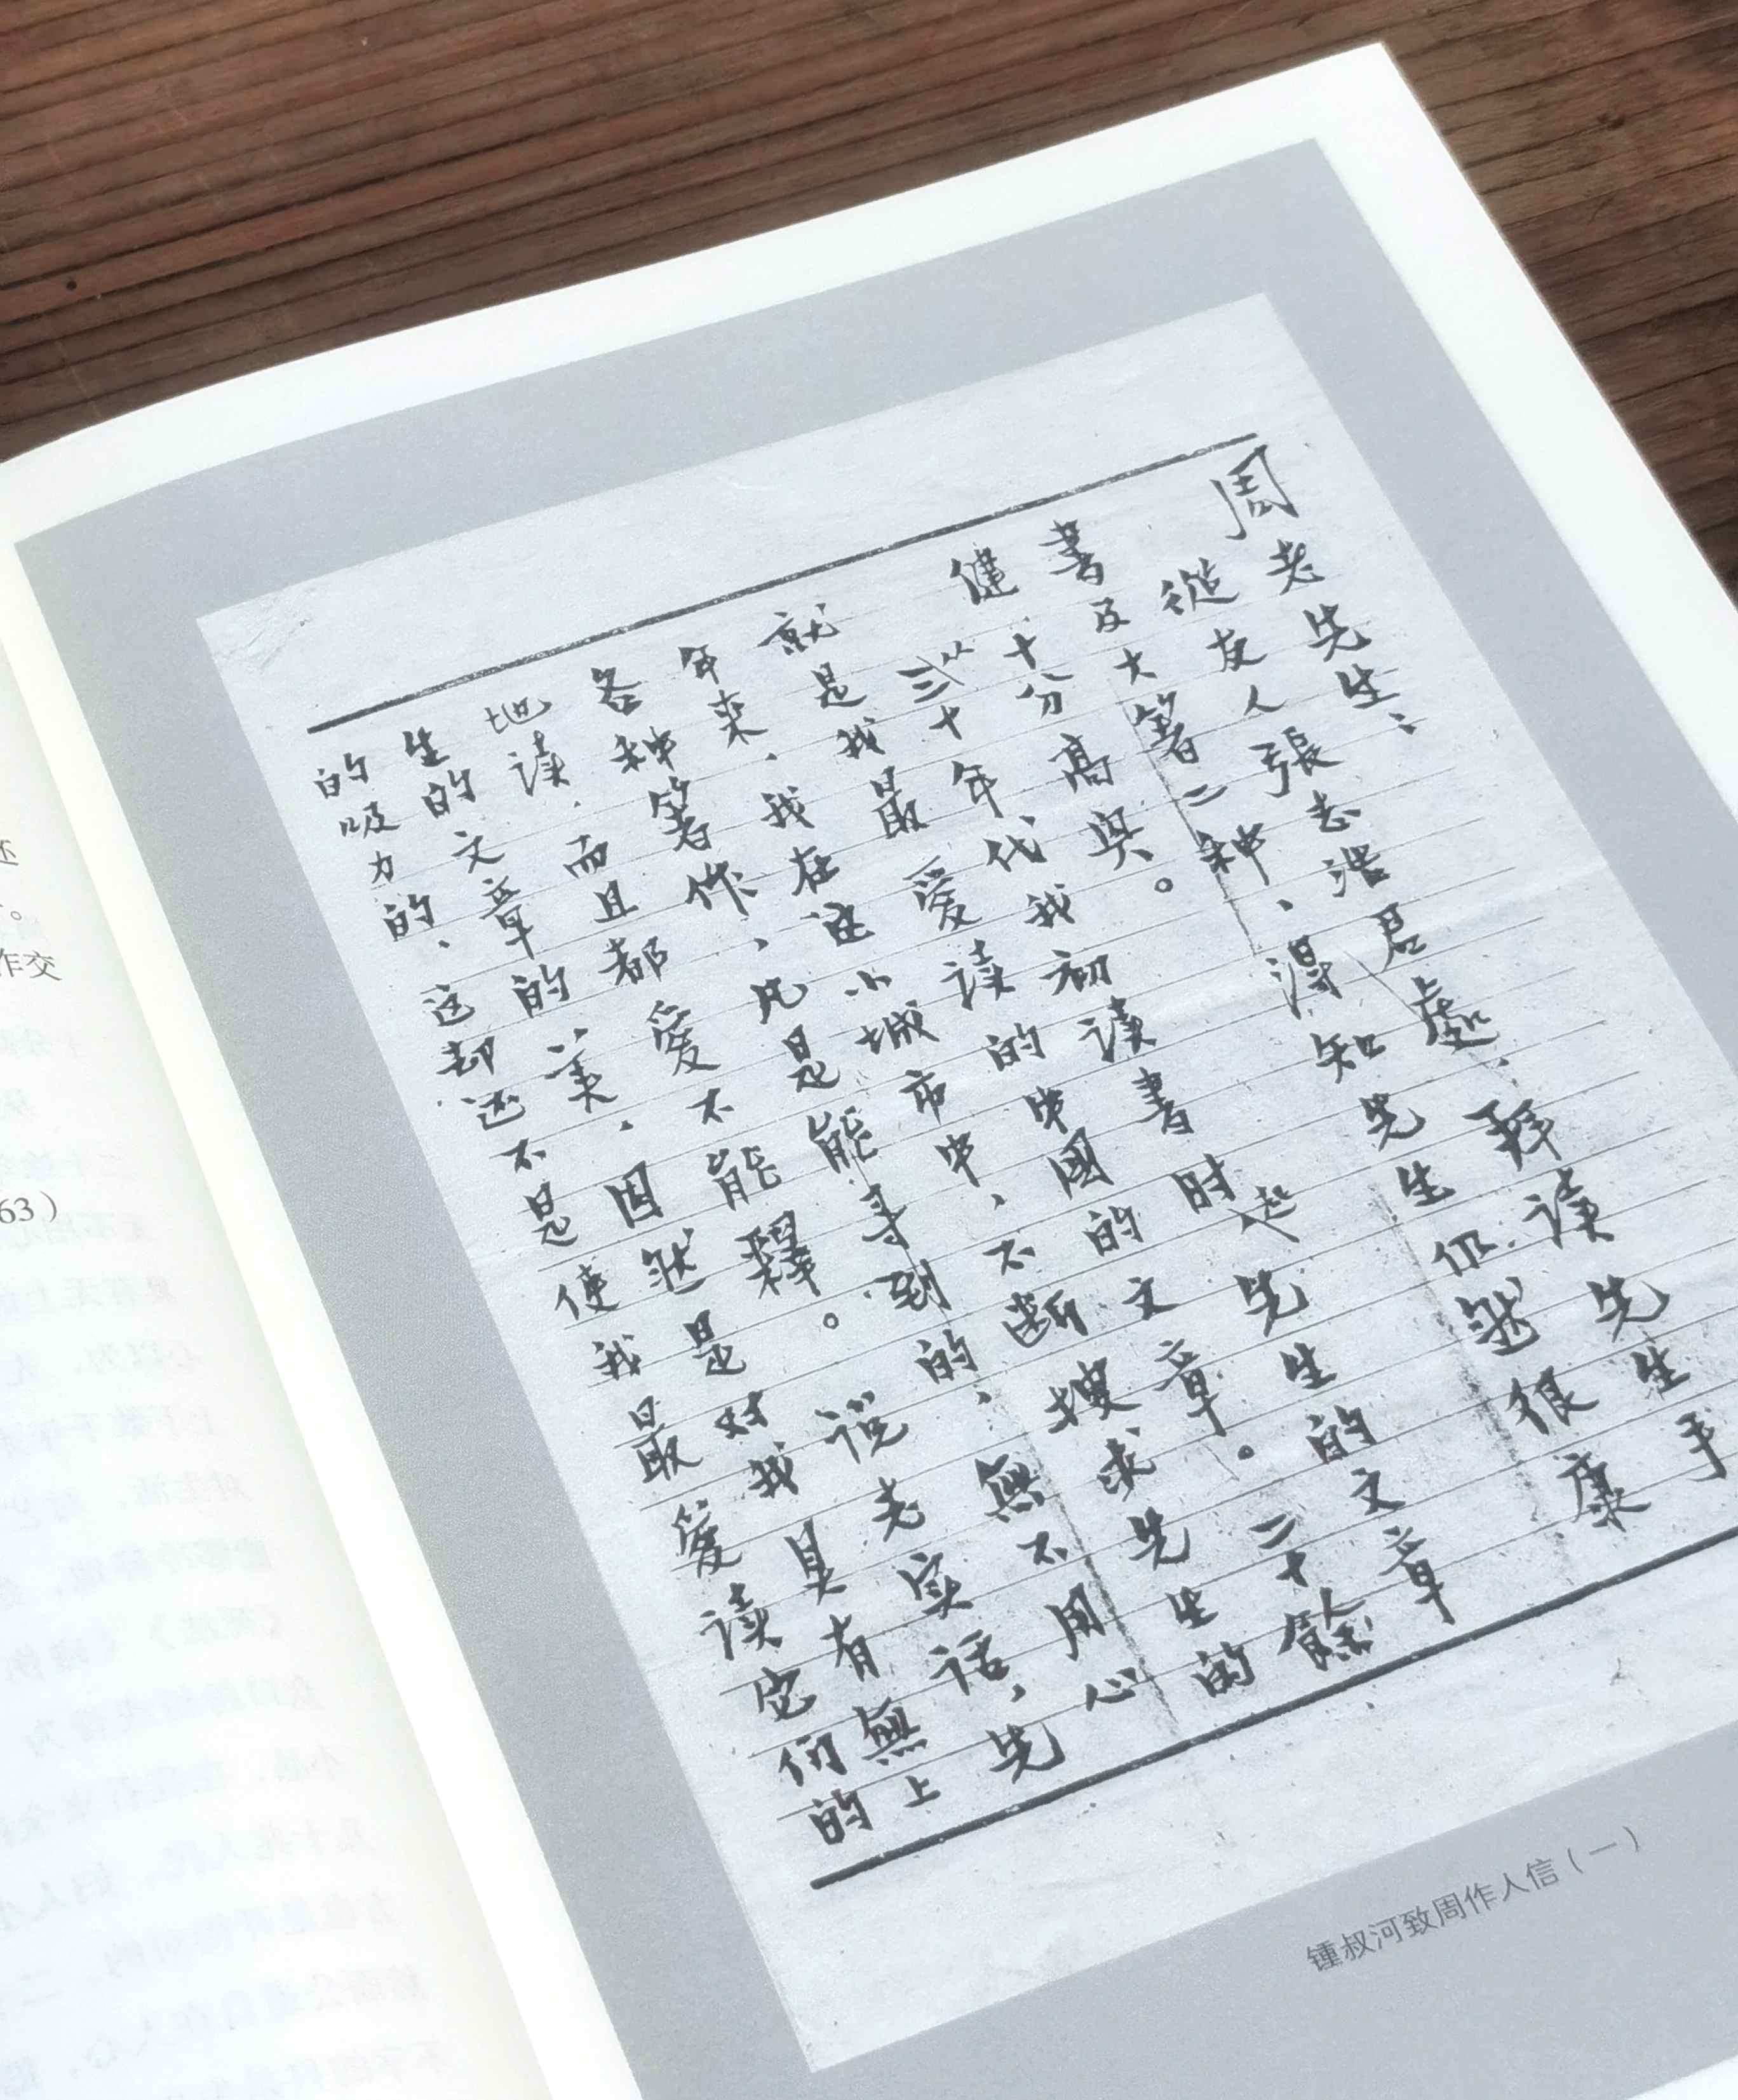 周老先生：
從友人張志浩君處，拜读先生手
書及大著二种，得知先生仍然很康
健，十分高兴。
从三十年代我初读書时起，先生的文章
就是我最爱读的中國的文章。二十餘
年来，我在这小城市中，不断搜求先生的
各种著作，凡是能寻到的，無不用心
地读，而且都爱不能釋。说老实话，先
生的文章的美，固然是对我具有無上
的吸力的，这却还不是使我最爱读它们的
锺叔河致周作人信（一）
作交
63）